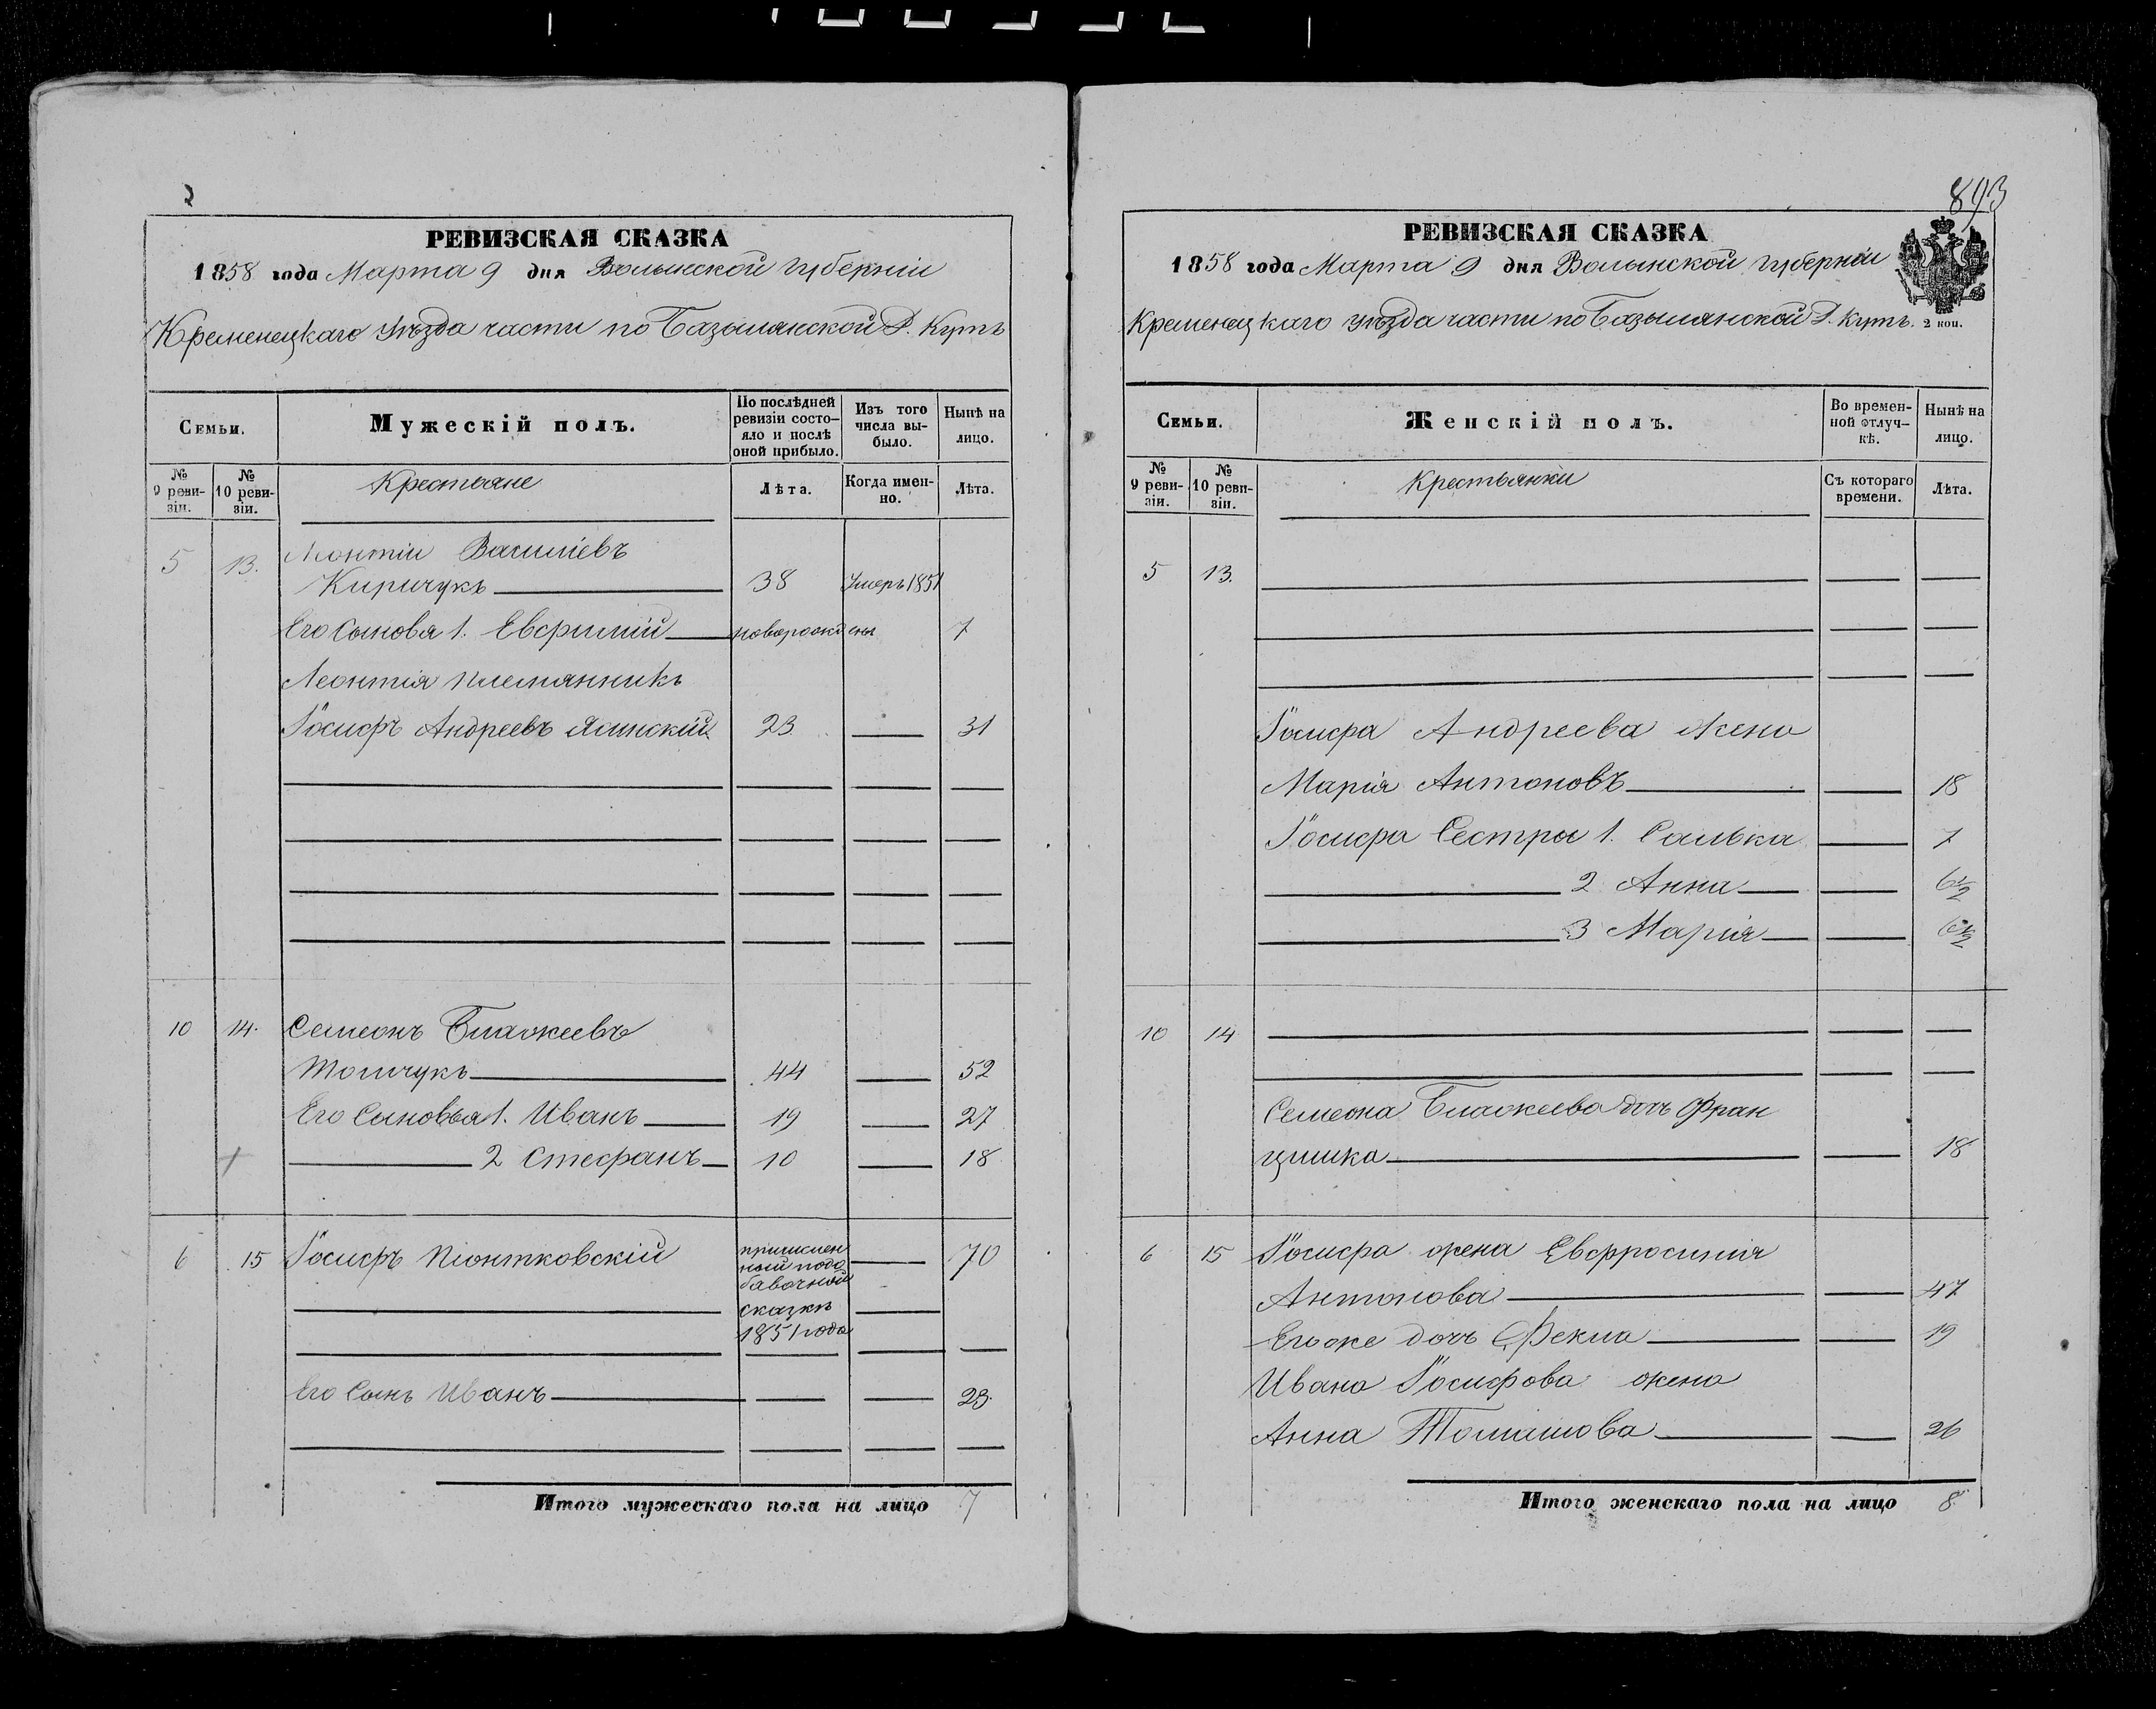 2
РЕВИЗСКАЯ СКАЗКА
1858 года Марта 9 дня Волынской губерніи
Кременецкаго уѣзда части по Базалянской Д. Кутъ
Семьи.
Мужескій полъ.
По послѣдней ревизіи состо-
яло и послѣ
оной прибыло.
Изъ того
числа вы-
было.
Нынѣ на
лицо.
№
9 реви-
зіи.
№
10 реви-
зіи.
Крестьяне
Лѣта.
Когда имен-
но.
Лѣта.
5 13. Леонтій Василіевъ
Киричукъ 38 Умеръ 1851
Его Сыновя 1. Евфимій новорожденъ 7
Леонтія племянникъ
Іосифъ Андреевъ Ясинскій 23 31
10 14. Семеонъ Блажеевъ
Томчукъ 44 52
Его Сыновья 1. Иванъ 19 27
2 Стефанъ 10 18
6 15 Іосифъ Піонтковскій 70
причислен
ный подо
бавочной
сказкѣ
1851 года
Его Сынъ Иванъ 23.
Итого мужескаго пола на лицо 7
893
РЕВИЗСКАЯ СКАЗКА
1858 года Марта 9 дня Волынской губерніи
Кременецкаго уѣзда части по Базалянской Д. Кутъ.
2 коп.
Семьи.
Женскій полъ.
Во времен-
ной отлуч-
кѣ.
Нынѣ на
лицо.
№
9 реви-
зіи.
№
10 реви-
зіи.
Крестьянки
Съ котораго
времени.
Лѣта.
5 13.
Іосифа Андреева жена
Марія Антоновъ 18
Іосифа Сестры 1. Салька 7
2 Анна 6 1/2
3 Марія 6 1/2
10 14
Семеона Блажеева дочь Фран
цишка 18
6 15 Іосифа жена Евфросинія
Антонова 47
Его же дочь Фекла 19
Ивана Іосифова жена
Анна Томашова 26
Итого женскаго пола на лицо 8